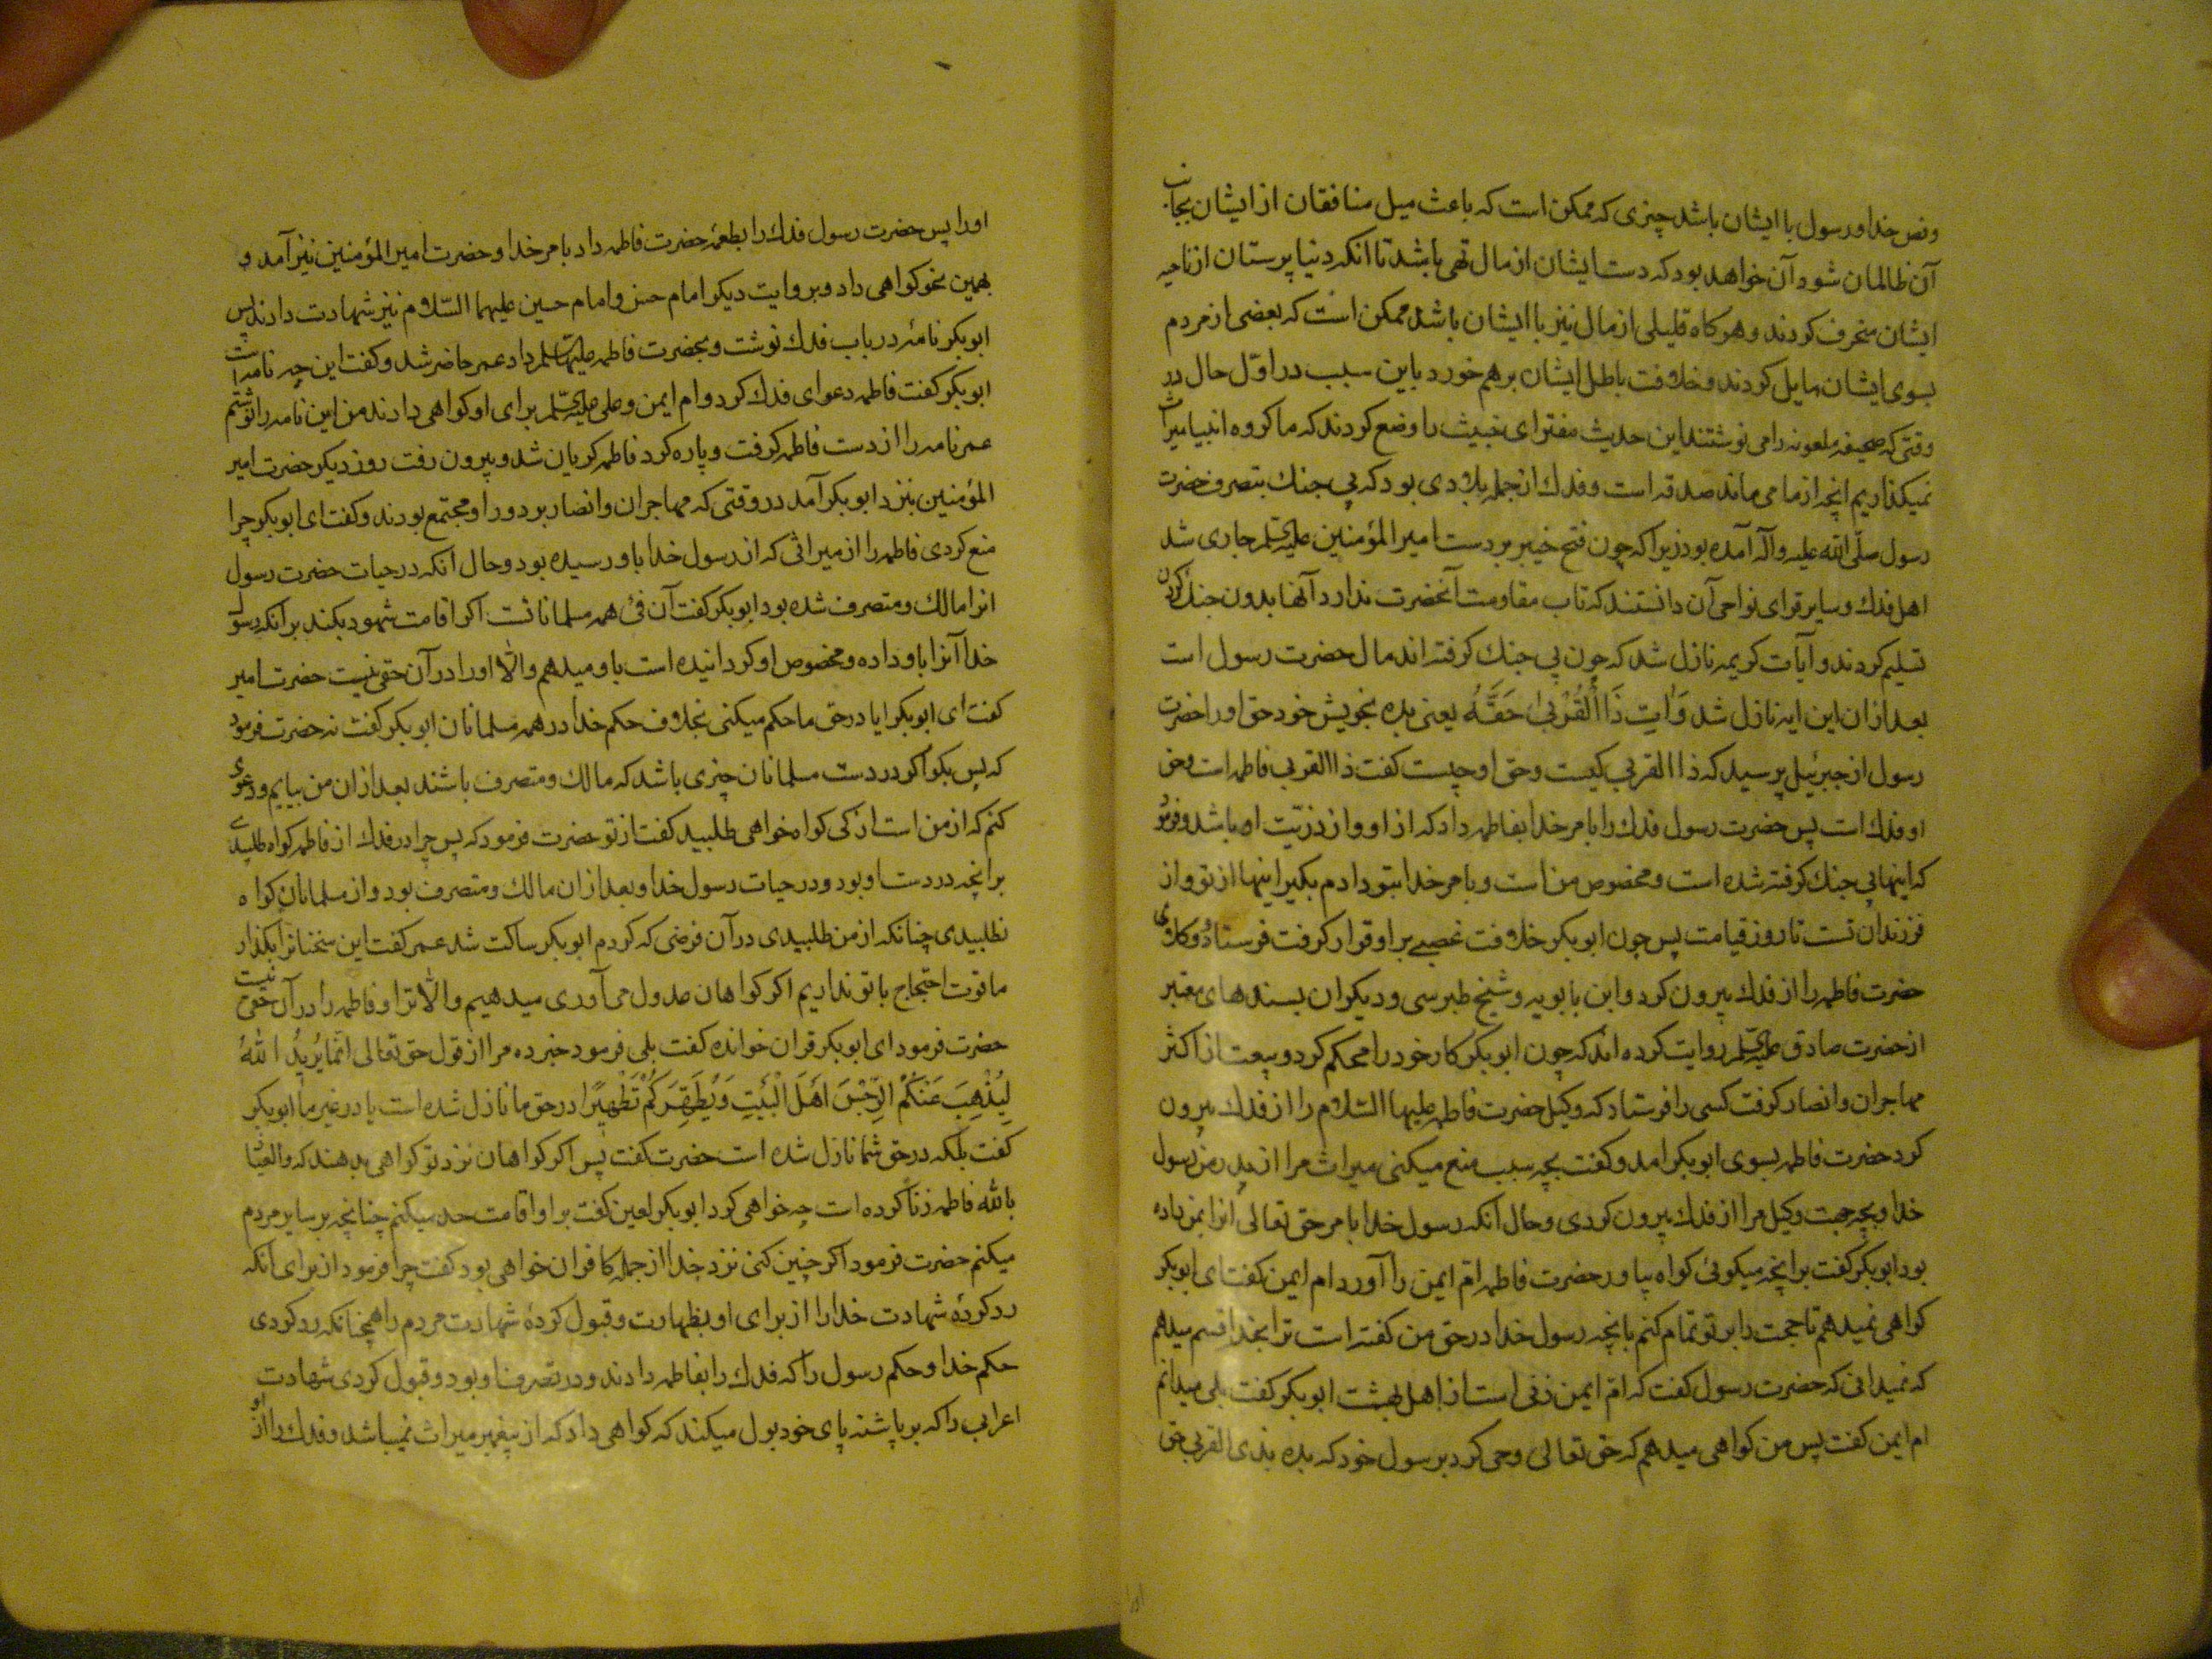 ونص خدا و رسول با ایشان باشد چیزی که ممکن است که باعث میل منافقان از ایشان بجانب
آن ظالمان شود آن خواهد بود که دست ایشان از مال تهی باشد تا انکه دنیا پرستان از ناحیه
ایشان منحرف کردند و هرکاه قلیلی از مال نیز با ایشان باشد ممکن است که بعضی از مردم
بسوی ایشان مایل کردند و خلافت باطل ایشان برهم خورد باین سبب در اوّل حال در
وقتی که صحیفه ملعونه را می نوشتند این حدیث مفترای خبیث را وضع کردند که ما کروه انبیا میراث
نمیکذاریم انچه از ما می ماند صدقه است و فدك ازجمله بلادی بود که بی جنك بتصرف حضرت
رسول صلّی الله علیه وآله آمده بود زیرا که چون فتح خیبر بر دست امیرالمؤمنین علیه السلم جاری شد
اهل فدك وسایر قرای نواحی آن دانستند که تاب مقاومت آنحضرت ندارد آنها بدون جنك کردن
تسلیم کردند و آیات کریمه نازل شد که چون بی جنك کرفته اند مال حضرت رسول است
بعد ازان این ایه نازل شد وَآتِ ذَا الْقُرْبیٰ حَقَّهُ یعنی بده بخویش خود حق او را حضرت
رسول از جبرئیل پرسید که ذا القربی کیست وحق او چیست کفت ذا القربی فاطمه است وحق
او فدك است پس حضرت رسول فدك را بامر خدا بفاطمه داد که از او و از ذرّیّت او باشد و فرمود
که اینها بی جنك کرفته شده است و مخصوص من است و بامر خدا بتو دادم بکیر اینها از تو و از
فرزندان تست تا روز قیامت پس چون ابوبکر خلافت غصبی بر او قرار کرفت فرستاد و وکلای
حضرت فاطمه را از فدك بیرون کرد و ابن بابویه و شیخ طبرسی و دیکران بسندهای معتبر
از حضرت صادق علیه السلم روایت کرده اند که چون ابوبکر کار خود را محکم کرد و بیعت از اکثر
مهاجران وانصار کرفت کسی را فرستاد که وکیل حضرت فاطمه علیها السّلام را از فدك بیرون
کرد حضرت فاطمه بسوی ابوبکر امد و کفت بچه سبب منع میکنی میراث مرا از پدر من رسول
خدا و بچه جهت وکیل مرا از فدك بیرون کردی و حال آنکه رسول خدا بامر حق تعالی انرا بمن داده
بود ابوبکر کفت برانچه میکوئی کواه بیاور حضرت فاطمه امّ ایمن را آورد ام ایمن کفت ای ابوبکر
کواهی نمیدهم تا حجت را بر تو تمام کنم بانچه رسول خدا در حق من کفته است ترا بخدا قسم میدهم
که نمیدانی که حضرت رسول کفت که امّ ایمن زنی است از اهل بهشت ابوبکر کفت بلی میدانم
ام ایمن کفت پس من کواهی میدهم که حق تعالی وحی کرد بر سول خود که بده بذی القربی حق
اورا پس حضرت رسول فدك را بطعمهٔ حضرت فاطمه داد بامر خدا و حضرت امیر المؤمنین نیز آمد و
بهمین نحو کواهی داد و بروایت دیکر امام حسن و امام حسین علیهما السّلام نیز شهادت دادند پس
ابوبکر نامهٔ در باب فدك نوشت و بحضرت فاطمه علیها السلم داد عمر حاضر شد و کفت این چه نامه است
ابوبکر کفت فاطمه دعوای فدك کرد و ام ایمن و علی علیه السلم برای او کواهی دادند من این نامه را نوشتم
عمر نامه را از دست فاطمه کرفت و پاره کرد فاطمه کریان شد و بیرون رفت روز دیکر حضرت امیر
المؤمنین بنزد ابوبکر آمد در وقتی که مهاجران وانصار بر دور او مجتمع بودند و کفت ای ابوبکر چرا
منع کردی فاطمه را از میراثی که از رسول خدا باو رسیده بود و حال انکه در حیات حضرت رسول
انرا مالك و متصرف شده بود ابوبکر کفت آن فئ همه مسلمانانست اکر اقامت شهود بکند بر انکه رسول
خدا آنرا باو داده و مخصوص او کردانیده است باو میدهم والّا او را در آن حقی نیست حضرت امیر
کفت ای ابوبکر ایا در حق ما حکم میکنی بخلاف حکم خدا در همه مسلمانان ابوبکر کفت نه حضرت فرمود
که پس بکو اکر در دست مسلمانان چیزی باشد که مالك و متصرف باشند بعد ازان من بیایم و دعوی
کنم که از من است از کی کواه خواهی طلبید کفت از تو حضرت فرمود که پس چرا در فدك از فاطمه کواه طلبیدی
برانچه در دست او بود و در حیات رسول خدا و بعد ازان مالك و متصرف بود و از مسلمانان کواه
نطلبیدی چنانکه از من طلبیدی در آن فرضی که کردم ابوبکر ساکت شد عمر کفت این سخنانرا بکذار
ما قوت احتجاج با تو نداریم اکر کواهان عدول می آوری میدهیم والّا ترا و فاطمه را در آن حقی نیست
حضرت فرمود ای ابوبکر قران خواندهٔ کفت بلی فرمود خبر ده مرا از قول حق تعالی اِنَّما یُرِیدُ اللهُ
لِیُذْهِبَ عَنْکُمُ الرِّجْسَ اَهْلَ الْبَیْتِ وَیُطَهِّرَکُمْ تَطْهِیرًا در حق ما نازل شده است یا در غیر ما ابوبکر
کفت بلکه در حق شما نازل شده است حضرت کفت پس اکر کواهان نزد تو کواهی بدهند که والعیاذ
بالله فاطمه زنا کرده است چه خواهی کرد ابوبکر لعین کفت بر او اقامت حد میکنم چنانچه بر سایر مردم
میکنم حضرت فرمود اکر چنین کنی نزد خدا ازجمله کافران خواهی بود کفت چرا فرمود از برای آنکه
رد کردهٔ شهادت خدا را از برای او بطهارت و قبول کردهٔ شهادت مردم را همچنانکه رد کردی
حکم خدا و حکم رسول را که فدك را بفاطمه دادند و در تصرف او بود و قبول کردی شهادت
اعرابی را که بر پاشنه پای خود بول میکند که کواهی داد که از پیغمبر میراث نمیباشد و فدك را از او